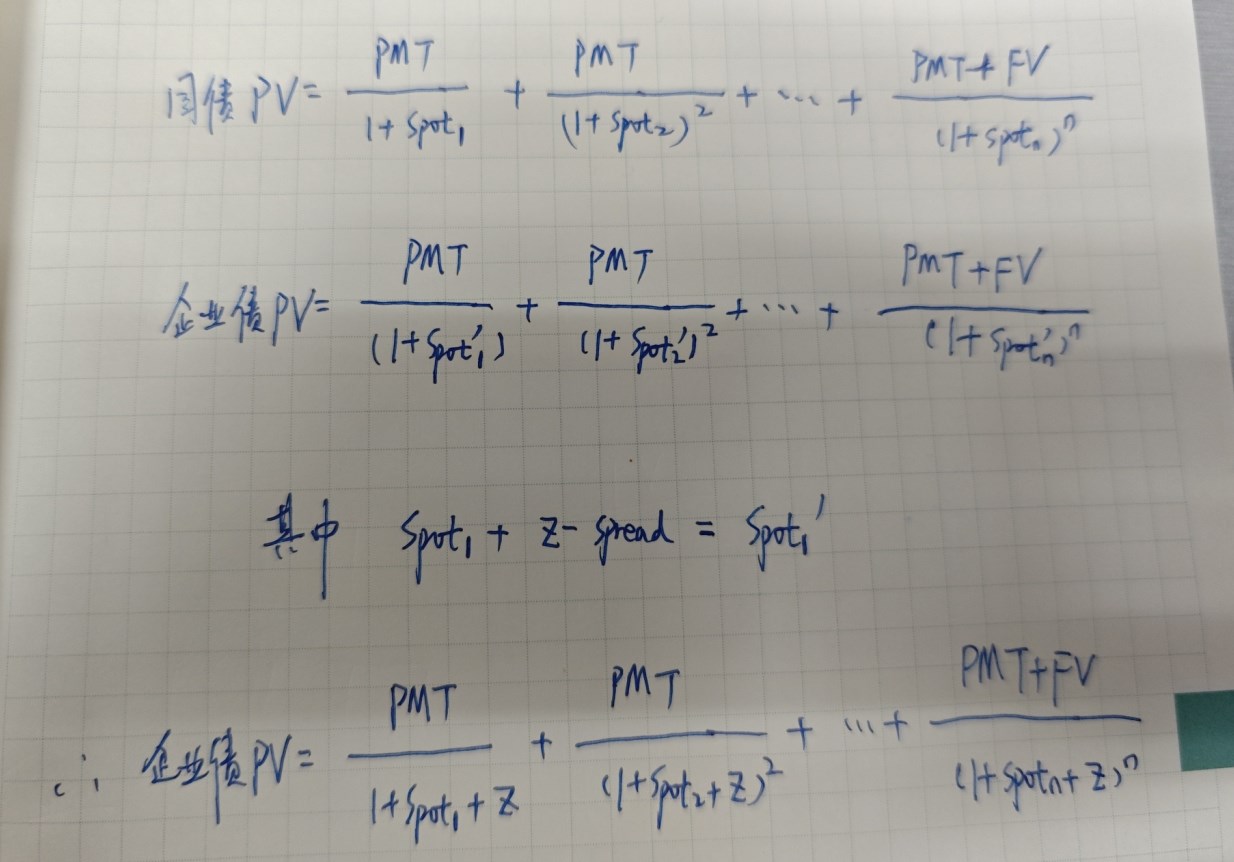 国债 PV = PMT/(1+Spot₁) + PMT/(1+Spot₂)² + ... + (PMT+FV)/(1+Spotₙ)ⁿ
企业债 PV = PMT/(1+Spot₁') + PMT/(1+Spot₂')² + ... + (PMT+FV)/(1+Spotₙ')ⁿ
其中 Spot₁ + Z-Spread = Spot₁'
∴ 企业债 PV = PMT/(1+Spot₁+Z) + PMT/(1+Spot₂+Z)² + ... + (PMT+FV)/(1+Spotₙ+Z)ⁿ